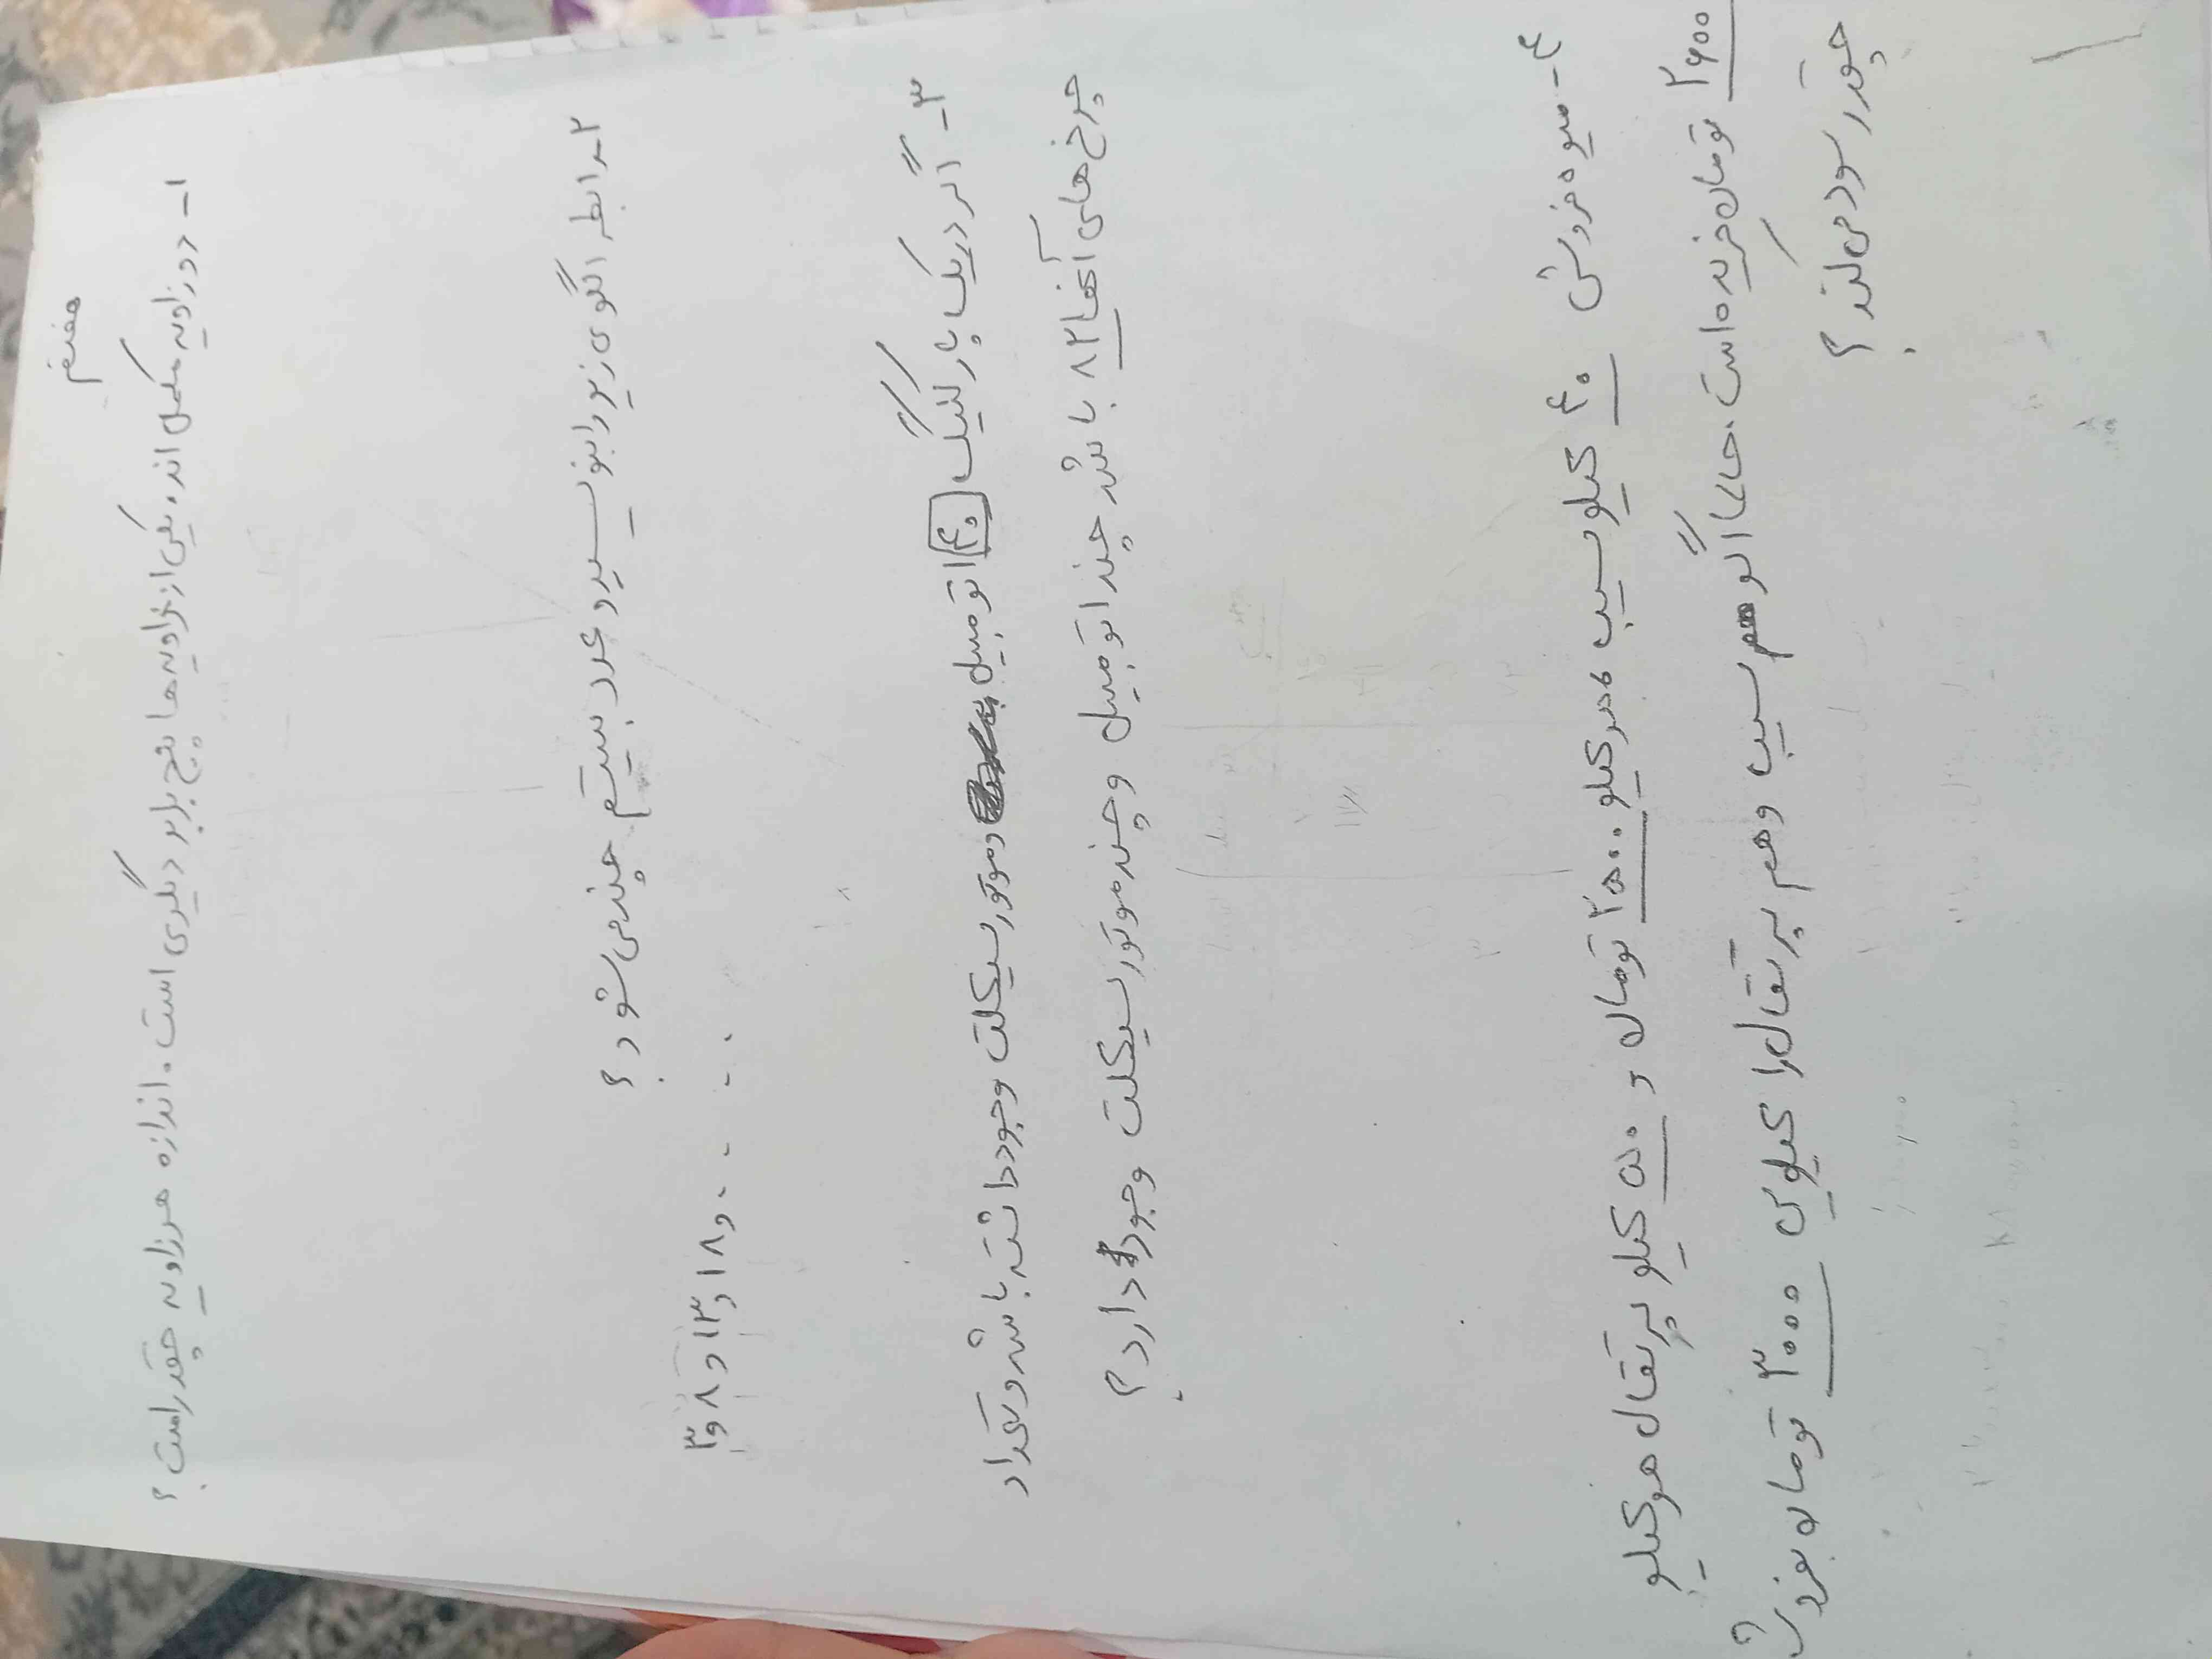 هفتم
۱- دو زاویه مکمل اند. یکی از زاویه ها پنج برابر دیگری است. اندازه هر زاویه چقدر است؟
۲- رابطه الگوی زیر را بنویسید و عدد بیستم چند می شود؟
۳و ۸ و ۱۳و ۱۸و . . . . .
۳- اگر در یک پارکینگ ۴۰ اتومبیل و موتور سیکلت وجود داشته باشد و تعداد
چرخ های آنها ۸۲ باشد چند اتومبیل و چند موتور سیکلت وجود دارد؟
۴- میوه فروش ۴۰ کیلو سیب هر کیلو ۲۵۰۰ تومان و ۵۰ کیلو پرتقال هر کیلو
۲۶۰۰ تومان خریده است. حال اگر هم سیب و هم پرتقال را کیلوی ۳۰۰۰ تومان بفروشد
چقدر سود می کند؟